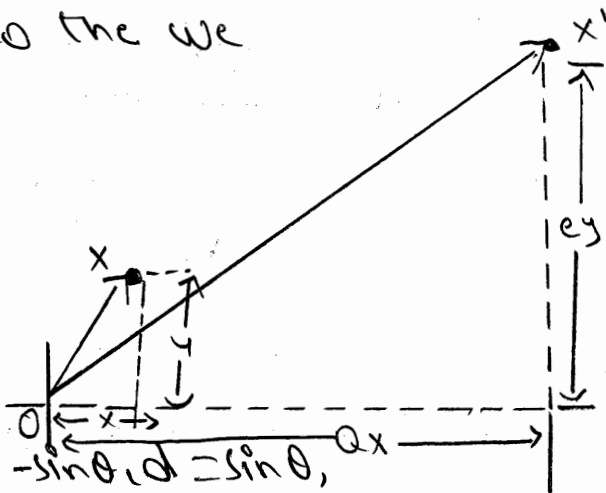 o the we
x'
x
ey
y
O
x
Qx
-sinθ, d = sinθ,